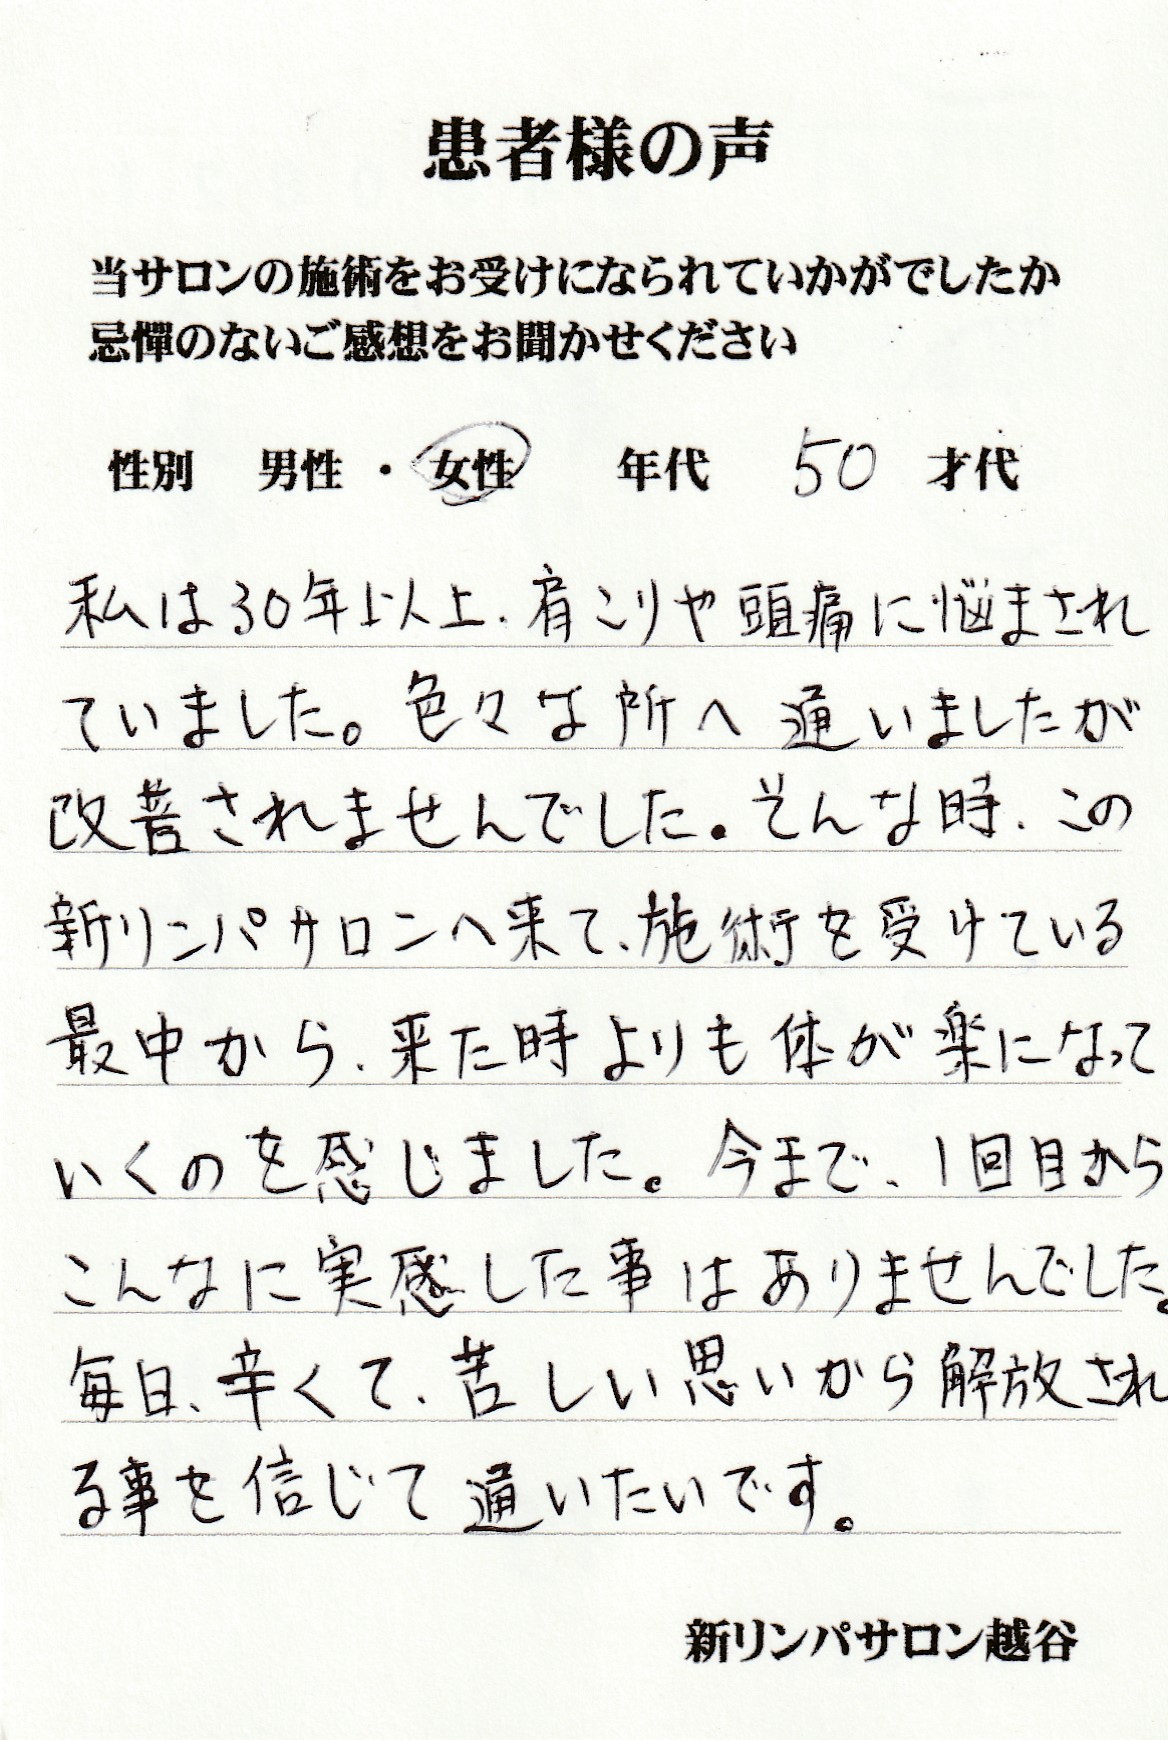 患者様の声
当サロンの施術をお受けになられていかがでしたか
忌憚のないご感想をお聞かせください
性別 男性・女性 年代 50 才代
私は30年以上、肩こりや頭痛に悩まされ
ていました。色々な所へ通いましたが
改善されませんでした。そんな時、この
新リンパサロンへ来て、施術を受けている
最中から、来た時よりも体が楽になって
いくのを感じました。今まで、1回目から
こんなに実感した事はありませんでした。
毎日、辛くて、苦しい思いから解放され
る事を信じて通いたいです。
新リンパサロン越谷